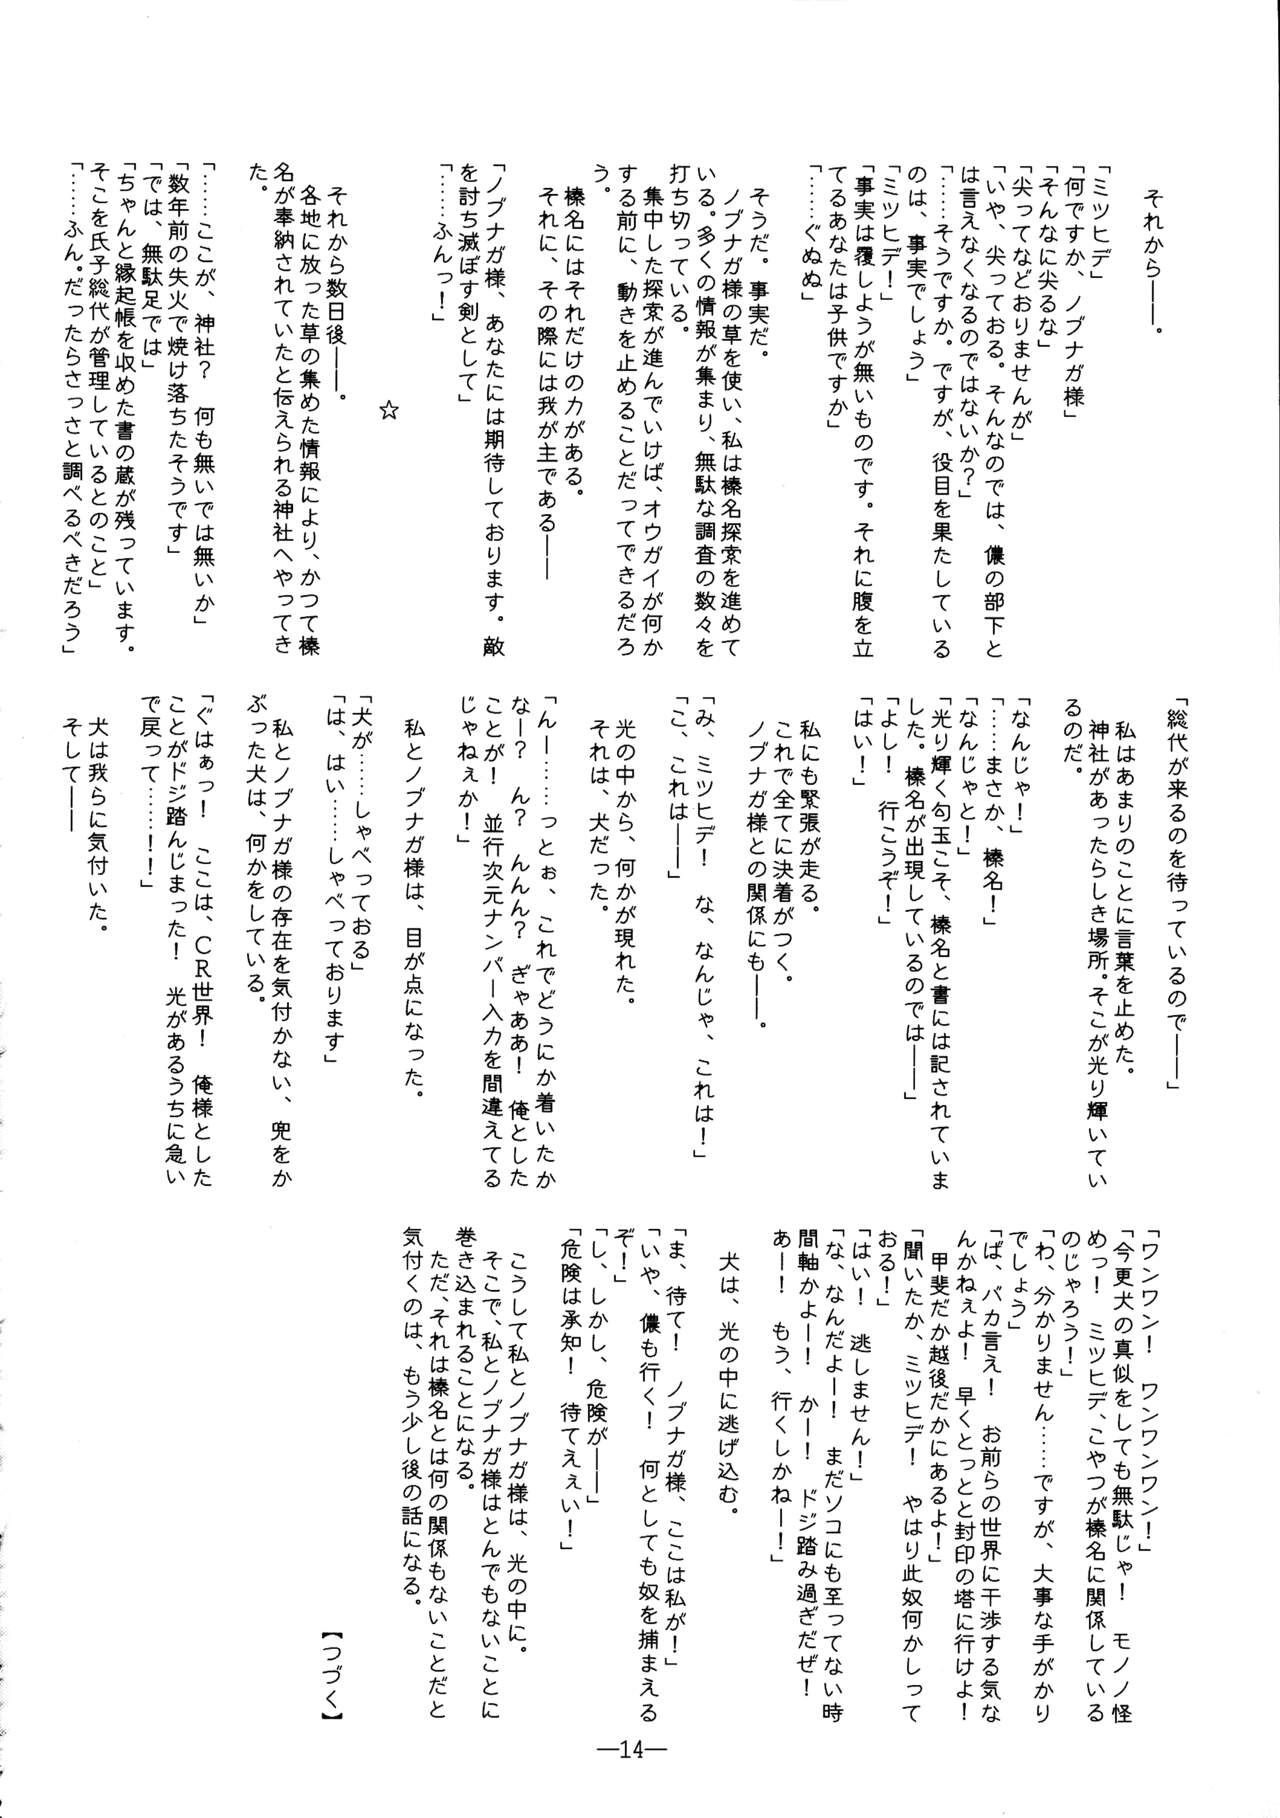 それから――。
「ミツヒデ」
「何ですか、ノブナガ様」
「そんなに尖るな」
「尖ってなどおりませんが」
「いや、尖っておる。そんなのでは、儂の部下と
は言えなくなるのではないか?」
「……そうですか。ですが、役目を果たしている
のは、事実でしょう」
「ミツヒデ!」
「事実は覆しようが無いものです。それに腹を立
てるあなたは子供ですか」
「……ぐぬぬ」
そうだ。事実だ。
ノブナガ様の草を使い、私は榛名探索を進めて
いる。多くの情報が集まり、無駄な調査の数々を
打ち切っている。
集中した探索が進んでいけば、オウガイが何か
する前に、動きを止めることだってできるだろ
う。
榛名にはそれだけの力がある。
それに、その際には我が主である――
「ノブナガ様、あなたには期待しております。敵
を討ち滅ぼす剣として」
「……ふんっ!」
☆
それから数日後――。
各地に放った草の集めた情報により、かつて榛
名が奉納されていたと伝えられる神社へやってき
た。
「……ここが、神社? 何も無いでは無いか」
「数年前の失火で焼け落ちたそうです」
「では、無駄足では」
「ちゃんと縁起帳を収めた書の蔵が残っています。
そこを氏子総代が管理しているとのこと」
「……ふん。だったらさっさと調べるべきだろう」
「総代が来るのを待っているので――」
私はあまりのことに言葉を止めた。
神社があったらしき場所。そこが光り輝いてい
るのだ。
「なんじゃ!」
「……まさか、榛名!」
「なんじゃと!」
「光り輝く勾玉こそ、榛名と書には記されていま
した。榛名が出現しているのでは――」
「よし! 行こうぞ!」
「はい!」
私にも緊張が走る。
これで全てに決着がつく。
ノブナガ様との関係にも――。
「み、ミツヒデ! な、なんじゃ、これは!」
「こ、これは――」
光の中から、何かが現れた。
それは、犬だった。
「んー……っとぉ、これでどうにか着いたか
なー? ん? んんん? ぎゃああ! 俺とした
ことが! 並行次元ナンバー入力を間違えてる
じゃねぇか!」
私とノブナガ様は、目が点になった。
「犬が……しゃべっておる」
「は、はい……しゃべっております」
私とノブナガ様の存在を気付かない、兜をか
ぶった犬は、何かをしている。
「ぐはぁっ! ここは、CR世界! 俺様とした
ことがドジ踏んじまった! 光があるうちに急い
で戻って……!!」
犬は我らに気付いた。
そして――
「ワンワン! ワンワンワン!」
「今更犬の真似をしても無駄じゃ! モノノ怪
めっ! ミツヒデ、こやつが榛名に関係している
のじゃろう!」
「わ、分かりません……ですが、大事な手がかり
でしょう」
「ば、バカ言え! お前らの世界に干渉する気な
んかねぇよ! 早くとっとと封印の塔に行けよ!
甲斐だか越後だかにあるよ!」
「聞いたか、ミツヒデ! やはり此奴何かしって
おる!」
「はい! 逃しません!」
「な、なんだよー! まだソコにも至ってない時
間軸かよー! かー! ドジ踏み過ぎだぜ!
あー! もう、行くしかねー!」
犬は、光の中に逃げ込む。
「ま、待て! ノブナガ様、ここは私が!」
「いや、儂も行く! 何としても奴を捕まえる
ぞ!」
「し、しかし、危険が――」
「危険は承知! 待てえぇい!」
こうして私とノブナガ様は、光の中に。
そこで、私とノブナガ様はとんでもないことに
巻き込まれることになる。
ただ、それは榛名とは何の関係もないことだと
気付くのは、もう少し後の話になる。
【つづく】
―14―